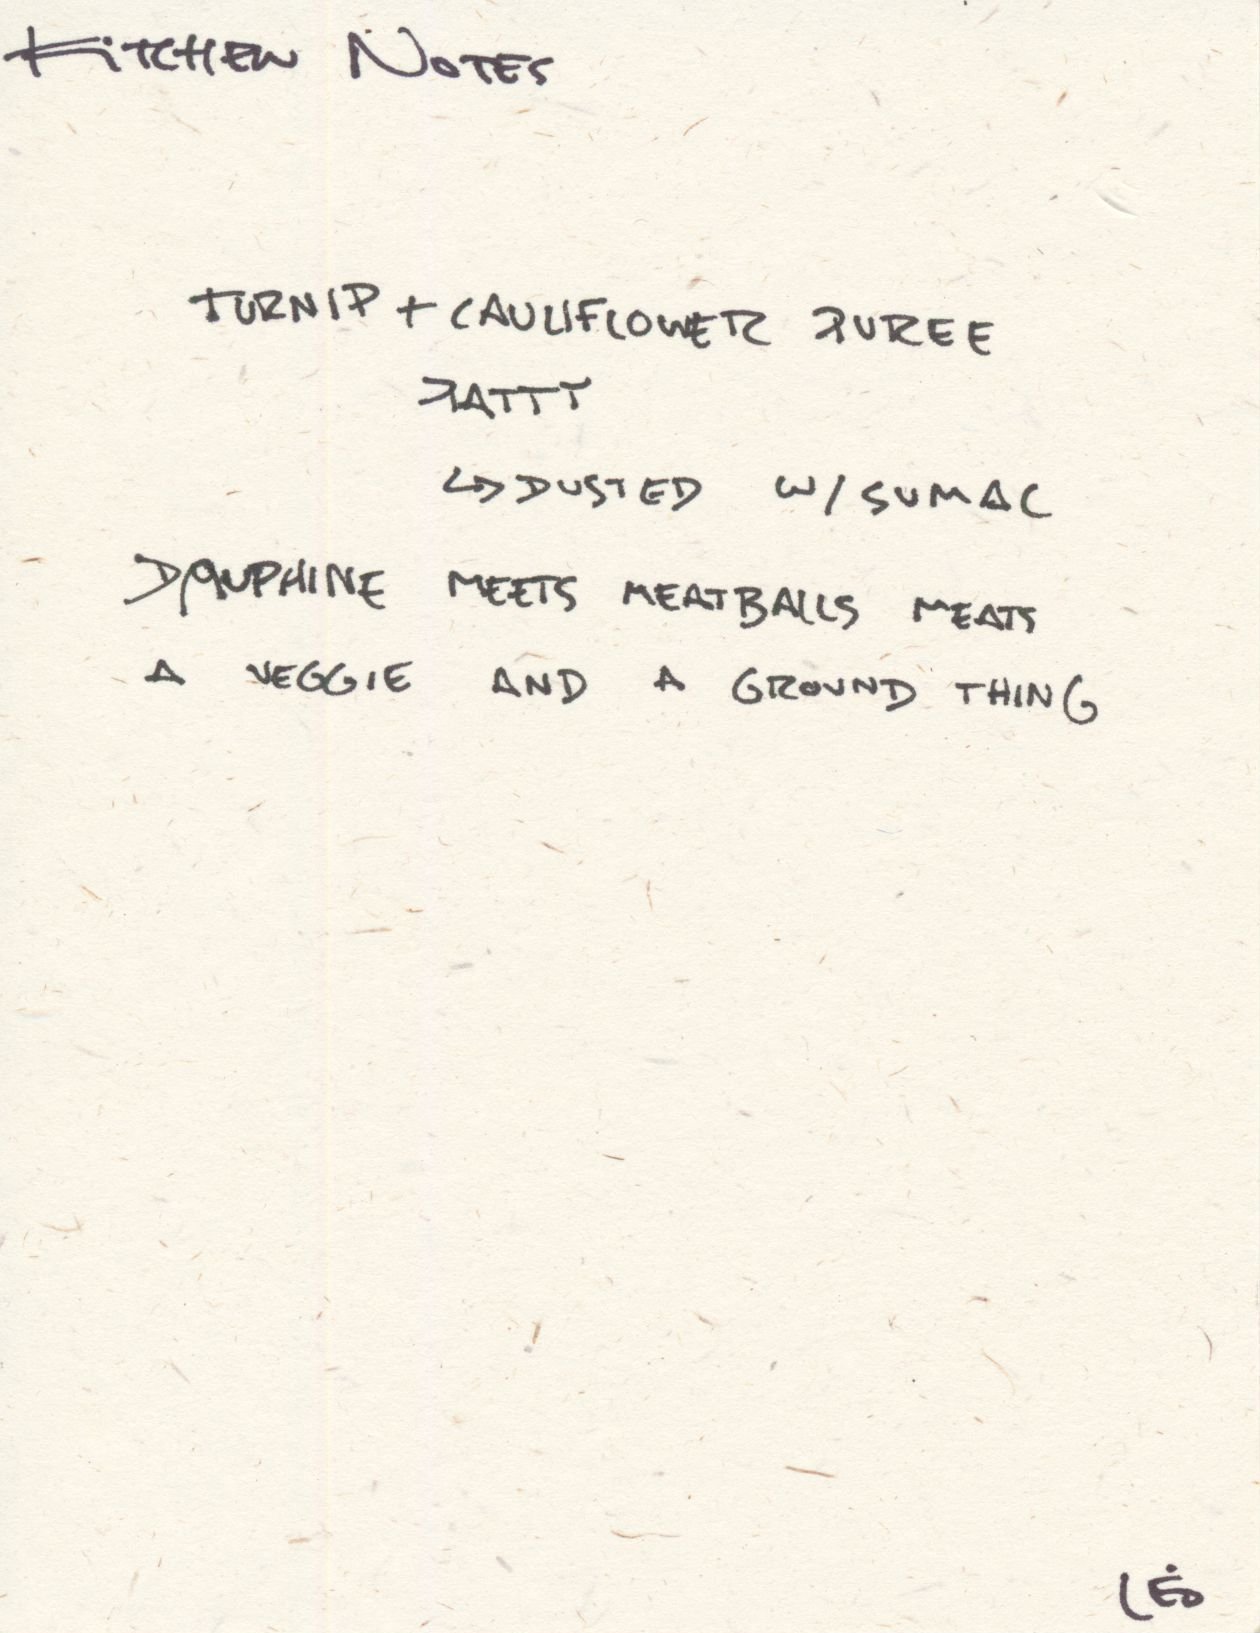 KITCHEN NOTES
TURNIP + CAULIFLOWER PUREE
PATTY
↳ DUSTED W/ SUMAC
DAUPHINE MEETS MEATBALLS MEATS
A VEGGIE AND A GROUND THING
LÉO